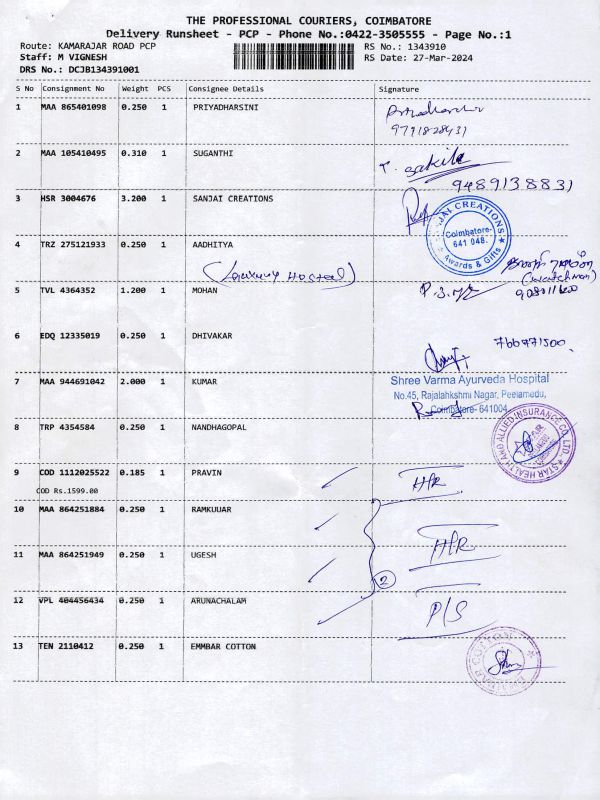 THE PROFESSIONAL COURIERS, COIMBATORE
Delivery Runsheet - PCP - Phone No.:0422-3505555 - Page No.:1
Route: KAMARAJAR ROAD PCP RS No.: 1343910
Staff: M VIGNESH RS Date: 27-Mar-2024
DRS No.: DCJB134391001
S No Consignment No Weight PCS Consignee Details Signature
1 MAA 865401098 0.250 1 PRIYADHARSINI
9791828431
2 MAA 105410495 0.310 1 SUGANTHI T. sakila
9489138831
3 HSR 3004676 3.200 1 SANJAI CREATIONS
SANJAI CREATIONS
Coimbatore-
641 048.
Awards & Gifts
4 TRZ 275121933 0.250 1 AADHITYA
Hostel) (watchman)
5 TVL 4364352 1.200 1 MOHAN
6 EDQ 12335019 0.250 1 DHIVAKAR
7 MAA 944691042 2.000 1 KUMAR
Shree Varma Ayurveda Hospital
No.45, Rajalahkshmi Nagar, Peelamedu,
Coimbatore- 641004
8 TRP 4354584 0.250 1 NANDHAGOPAL
STAR HEALTH AND ALLIED INSURANCE CO. LTD.
9 COD 1112025522 0.185 1 PRAVIN H/R
COD Rs.1599.00
10 MAA 864251884 0.250 1 RAMKUUAR
11 MAA 864251949 0.250 1 UGESH H/R
2
12 VPL 404456434 0.250 1 ARUNACHALAM P/S
13 TEN 2110412 0.250 1 EMMBAR COTTON